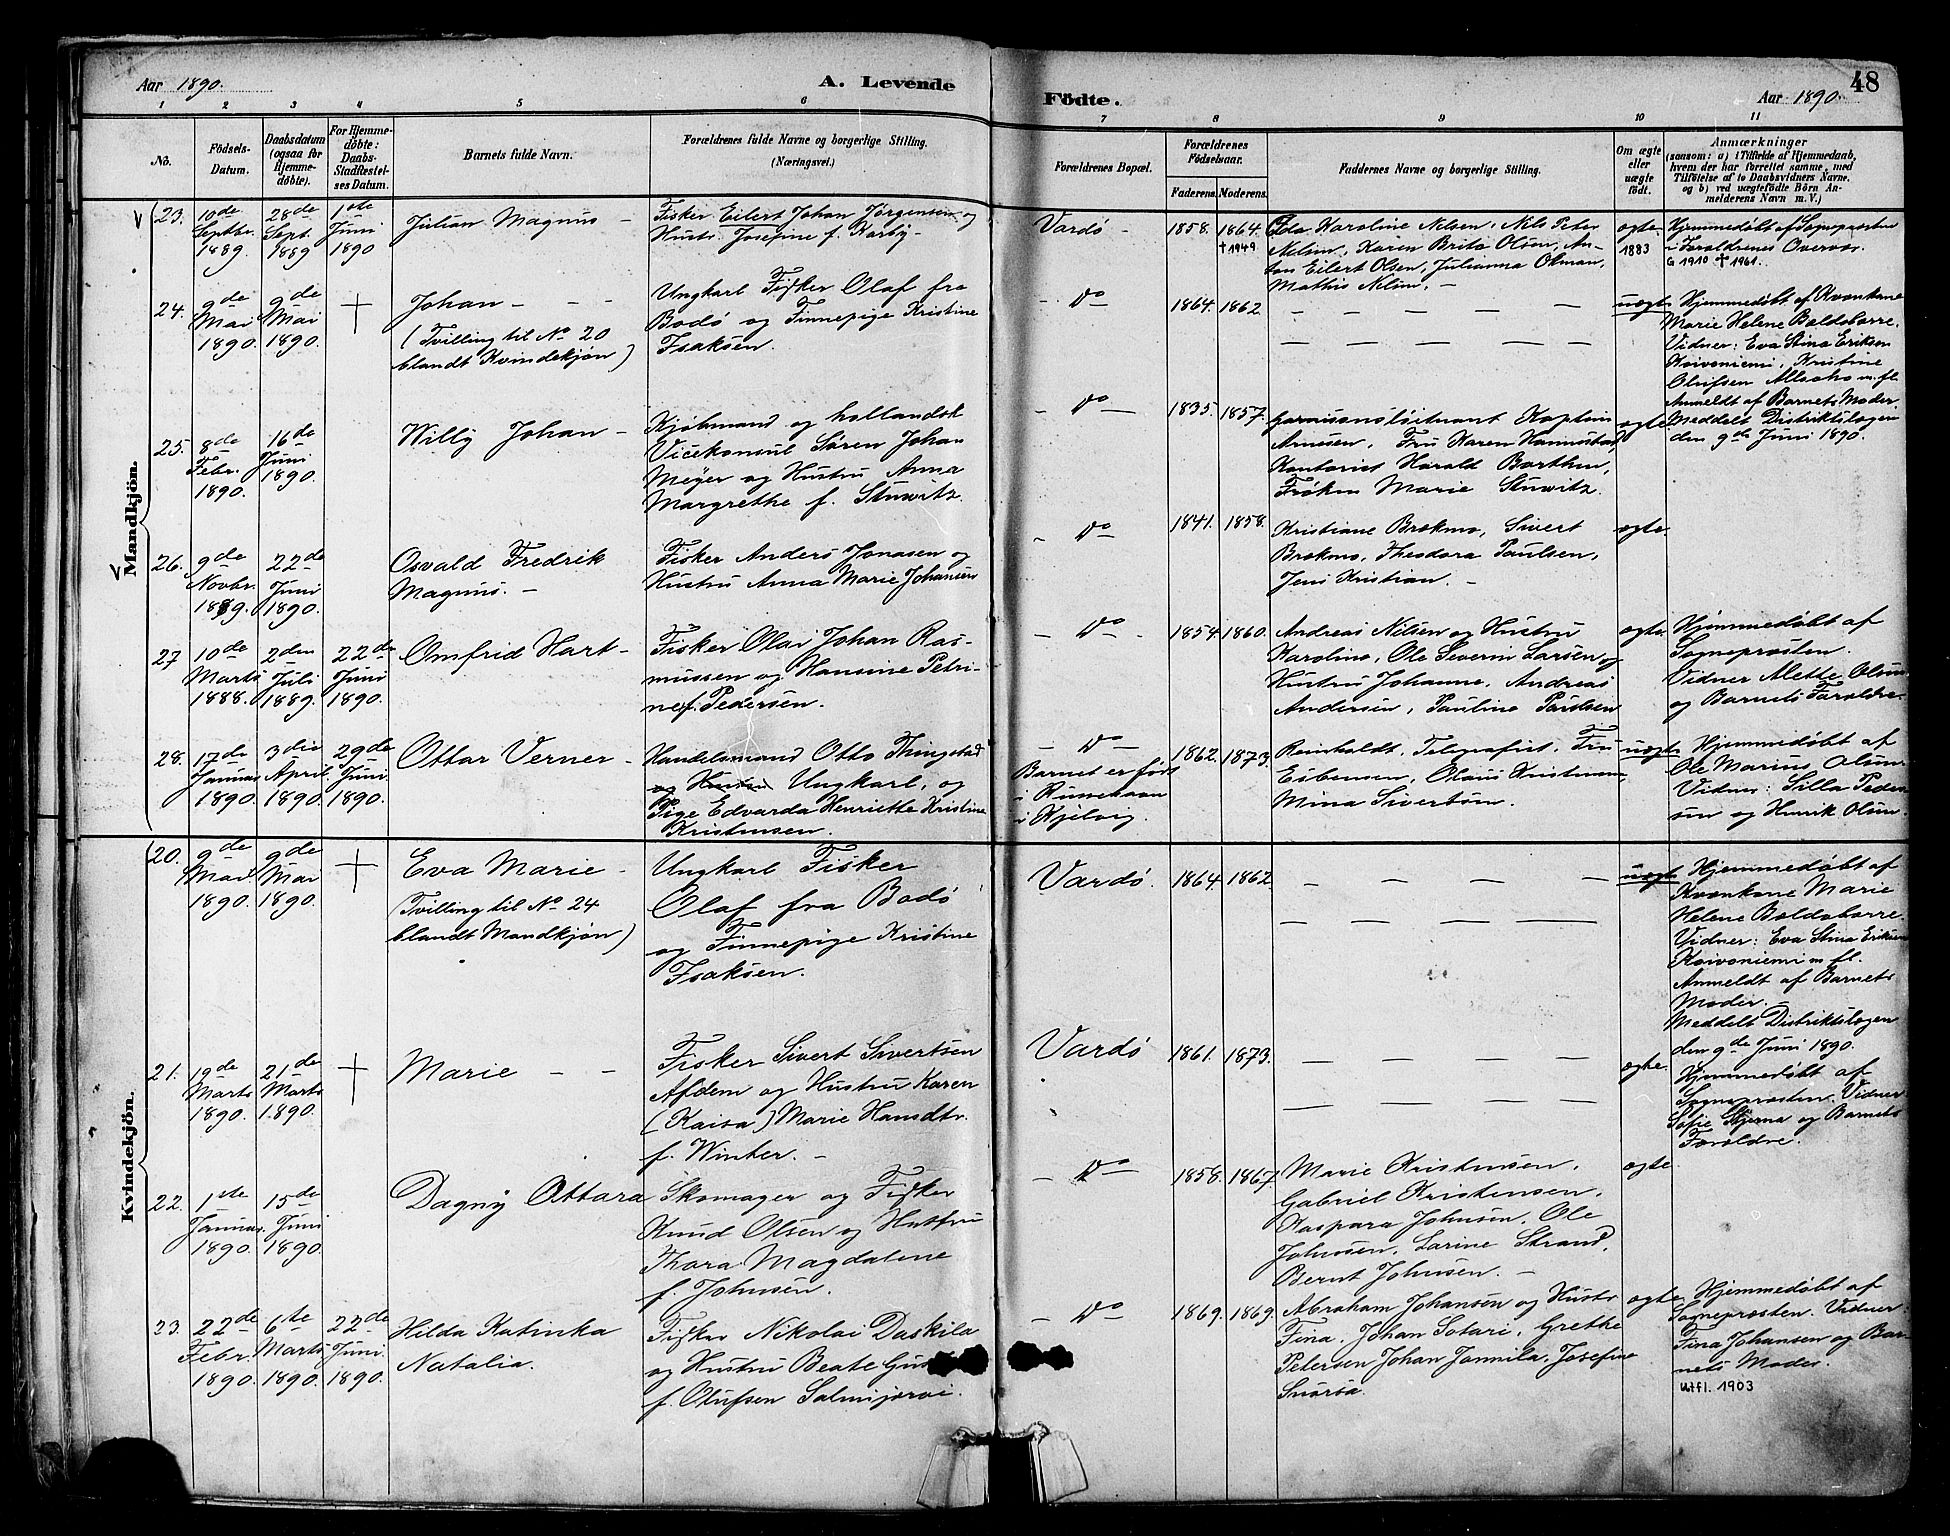 Aar 1890.
A. Levende
Födte.
Aar 1890.
48
1 2 3 4 5 6 7 8 9 10 11
No.
Födsels-
Datum.
Daabsdatum
(ogsaa for
Hjemme-
döbte).
For Hjemme-
döbte:
Daabs-
Stadfæstel-
ses Datum.
Barnets fulde Navn.
Forældrenes fulde Navne og borgerlige Stilling.
(Næringsvei.)
Forældrenes Bopæl.
Forældrenes
Födselsaar.
Faderens.
Moderens.
Faddernes Navne og borgerlige Stilling.
Om ægte
eller
uægte
födt.
Anmærkninger
(saasom: a) i Tilfælde af Hjemmedaab,
hvem der har forrettet samme, med
Tilföielse af to Daabsvidners Navne,
og b) ved uægtefödte Börn An-
melderens Navn m. V.)
Mandkjön.
23.
10de
Septbr.
1889.
28de
Sept.
1889
1ste
Juni
1890
Julian Magnus –
Fisker Eilert Johan Jørgensen og
Hustr. Josefine f. Karby –
Vardö –
1858.
1864.
†1949
Ida Karoline Nilsen, Nils Peter
Nilsen, Karen Brita Olsen, An-
ton Eilert Olsen, Julianna Okman,
Mathis Nilsen, –
ægte
1883
Hjemmedøbt af Sognepræsten
i Forældrenes Overvær.
G 1910 † 1961.
24.
9de
Mai
1890.
9de
Mai
1890.
†
Johan – – –
(Tvilling til No 20
blandt Kvindekjøn)
Ungkarl Fisker Olaf fra
Bodö og Finnepige Kristine
Isaksen.
– Do –
1864.
1862
– – – – –
– – – – –
uægte
Hjemmedøbt af Kvænkone
Marie Helene Baldobarre.
Vidner: Eva Stina Eriksen
Koivoniemi, Kristine
Olufsen m. fl.
Anmeldt af Barnets Moder
Meddelt Distriktslægen
den 9de Juni 1890.
25.
8de
Febr.
1890.
16de
Juni
1890.
Willy Johan –
Kjøbmand og hollandsk
Vicekonsul Sören Johan
Meyer og Hustru Anna
Margrethe f. Stuwitz.
– Do –
1835.
1857.
Garnisonsløitnant Kaptein
Arnesen, Fru Karen Hannestad,
Kontorist Harald Barthen,
Frøken Marie Stuwitz.
ægte
26.
9de
Novbr.
1889.
22de
Juni
1890.
Osvald Fredrik
Magnus. –
Fisker Anders Jonasen og
Hustru Anna Marie Johansen
– Do –
1841.
1858.
Kristiane Brækmo, Sivert
Brækmo, Theodora Paulsen,
Jens Kristian. –
ægte.
27
10de
Marts
1888.
2den
Juli
1889.
22de
Juni
1890.
Omfrid Hart–
Fisker Olai Johan Ras-
mussen og Hansine Petri-
ne f. Pedersen.
– Do –
1854.
1860.
Andreas Nilsen og Hustru
Karoline, Ole Severin Larsen og
Hustru Johanne, Andreas
Andersen, Pauline Paulsen
ægte.
Hjemmedøbt af
Sognepræsten.
Vidner Mette Olsen
og Barnets Forældre.
28.
17de
Januar
1890.
3die
April
1890.
29de
Juni
1890.
Ottar Verner –
Handelsmand Otto Thingstad
og Hustru Ungkarl, og
Pige Edvarda Henriette Kristine
Kristensen.
– Do –
Barnet er født
i Runehavn
i Kjelvig.
1862.
1873.
Reinholdt, Telegrafist, Fru
Esbensen, Olaus Kristensen
Mina Sivertsen.
uægte
Hjemmedøbt af
Ole Marius Olsen
Vidner: Silla Peder-
sen og Henrik Olsen.
Kvindekjön.
20.
9de
Mai
1890.
9de
Mai
1890.
†
Eva Marie –
(Tvilling til No 24
blandt Mandkjøn)
Ungkarl Fisker
Olaf fra Bodö
og Finnepige Kristine
Isaksen.
Vardö.
1864.
1862
– – – –
– – – –
uægte
Hjemmedøbt af
Kvænkone Marie
Helene Baldobarre.
Vidner: Eva Stina Eriksen
Koivoniemi m fl.
Anmeldt af Barnets
Moder. –
Meddelt Distriktslægen
den 9de Juni 1890.
21.
19de
Marts
1890.
21de
Marts
1890.
†
Marie – –
Fisker Sivert Sivertsen
Afdem og Hustru Karen
(Kaisa) Marie Hansdtr.
f. Winter. –
Vardö
1861.
1873.
– – – –
– – – –
ægte.
Hjemmedøbt af
Sognepræsten. Vidner
Sofie Stjerna og Barnets
Forældre.
22.
1ste
Januar.
1890.
15de
Juni
1890.
Dagny Ottara
Skomager og Fisker
Knud Olsen og Hustru
Thora Magdalene
f. Johnsen.
– Do –
1858.
1867.
Marie Kristensen,
Gabriel Kristensen,
Kaspara Johnsen, Ole
Johnsen, Larine Strand,
Bernt Johnsen. –
ægte.
23.
22de
Febr.
1890.
6te
Marts
1890.
22de
Juni.
1890.
Hilda Katinka
Natalia.
Fisker Nikolai Daskila
og Hustru Beate Gus
f. Olufsen Salmijærvi.
– Do –
1869.
1869.
Abraham Johansen og Hustr
Fina, Johan Sotari, Grethe
Petersen, Johan Jonnila, Josefine
Snorsa.
ægte
Hjemmedøbt af
Sognepræsten. Vidner:
Fina Johansen og Bar-
nets Moder.
Utfl. 1903